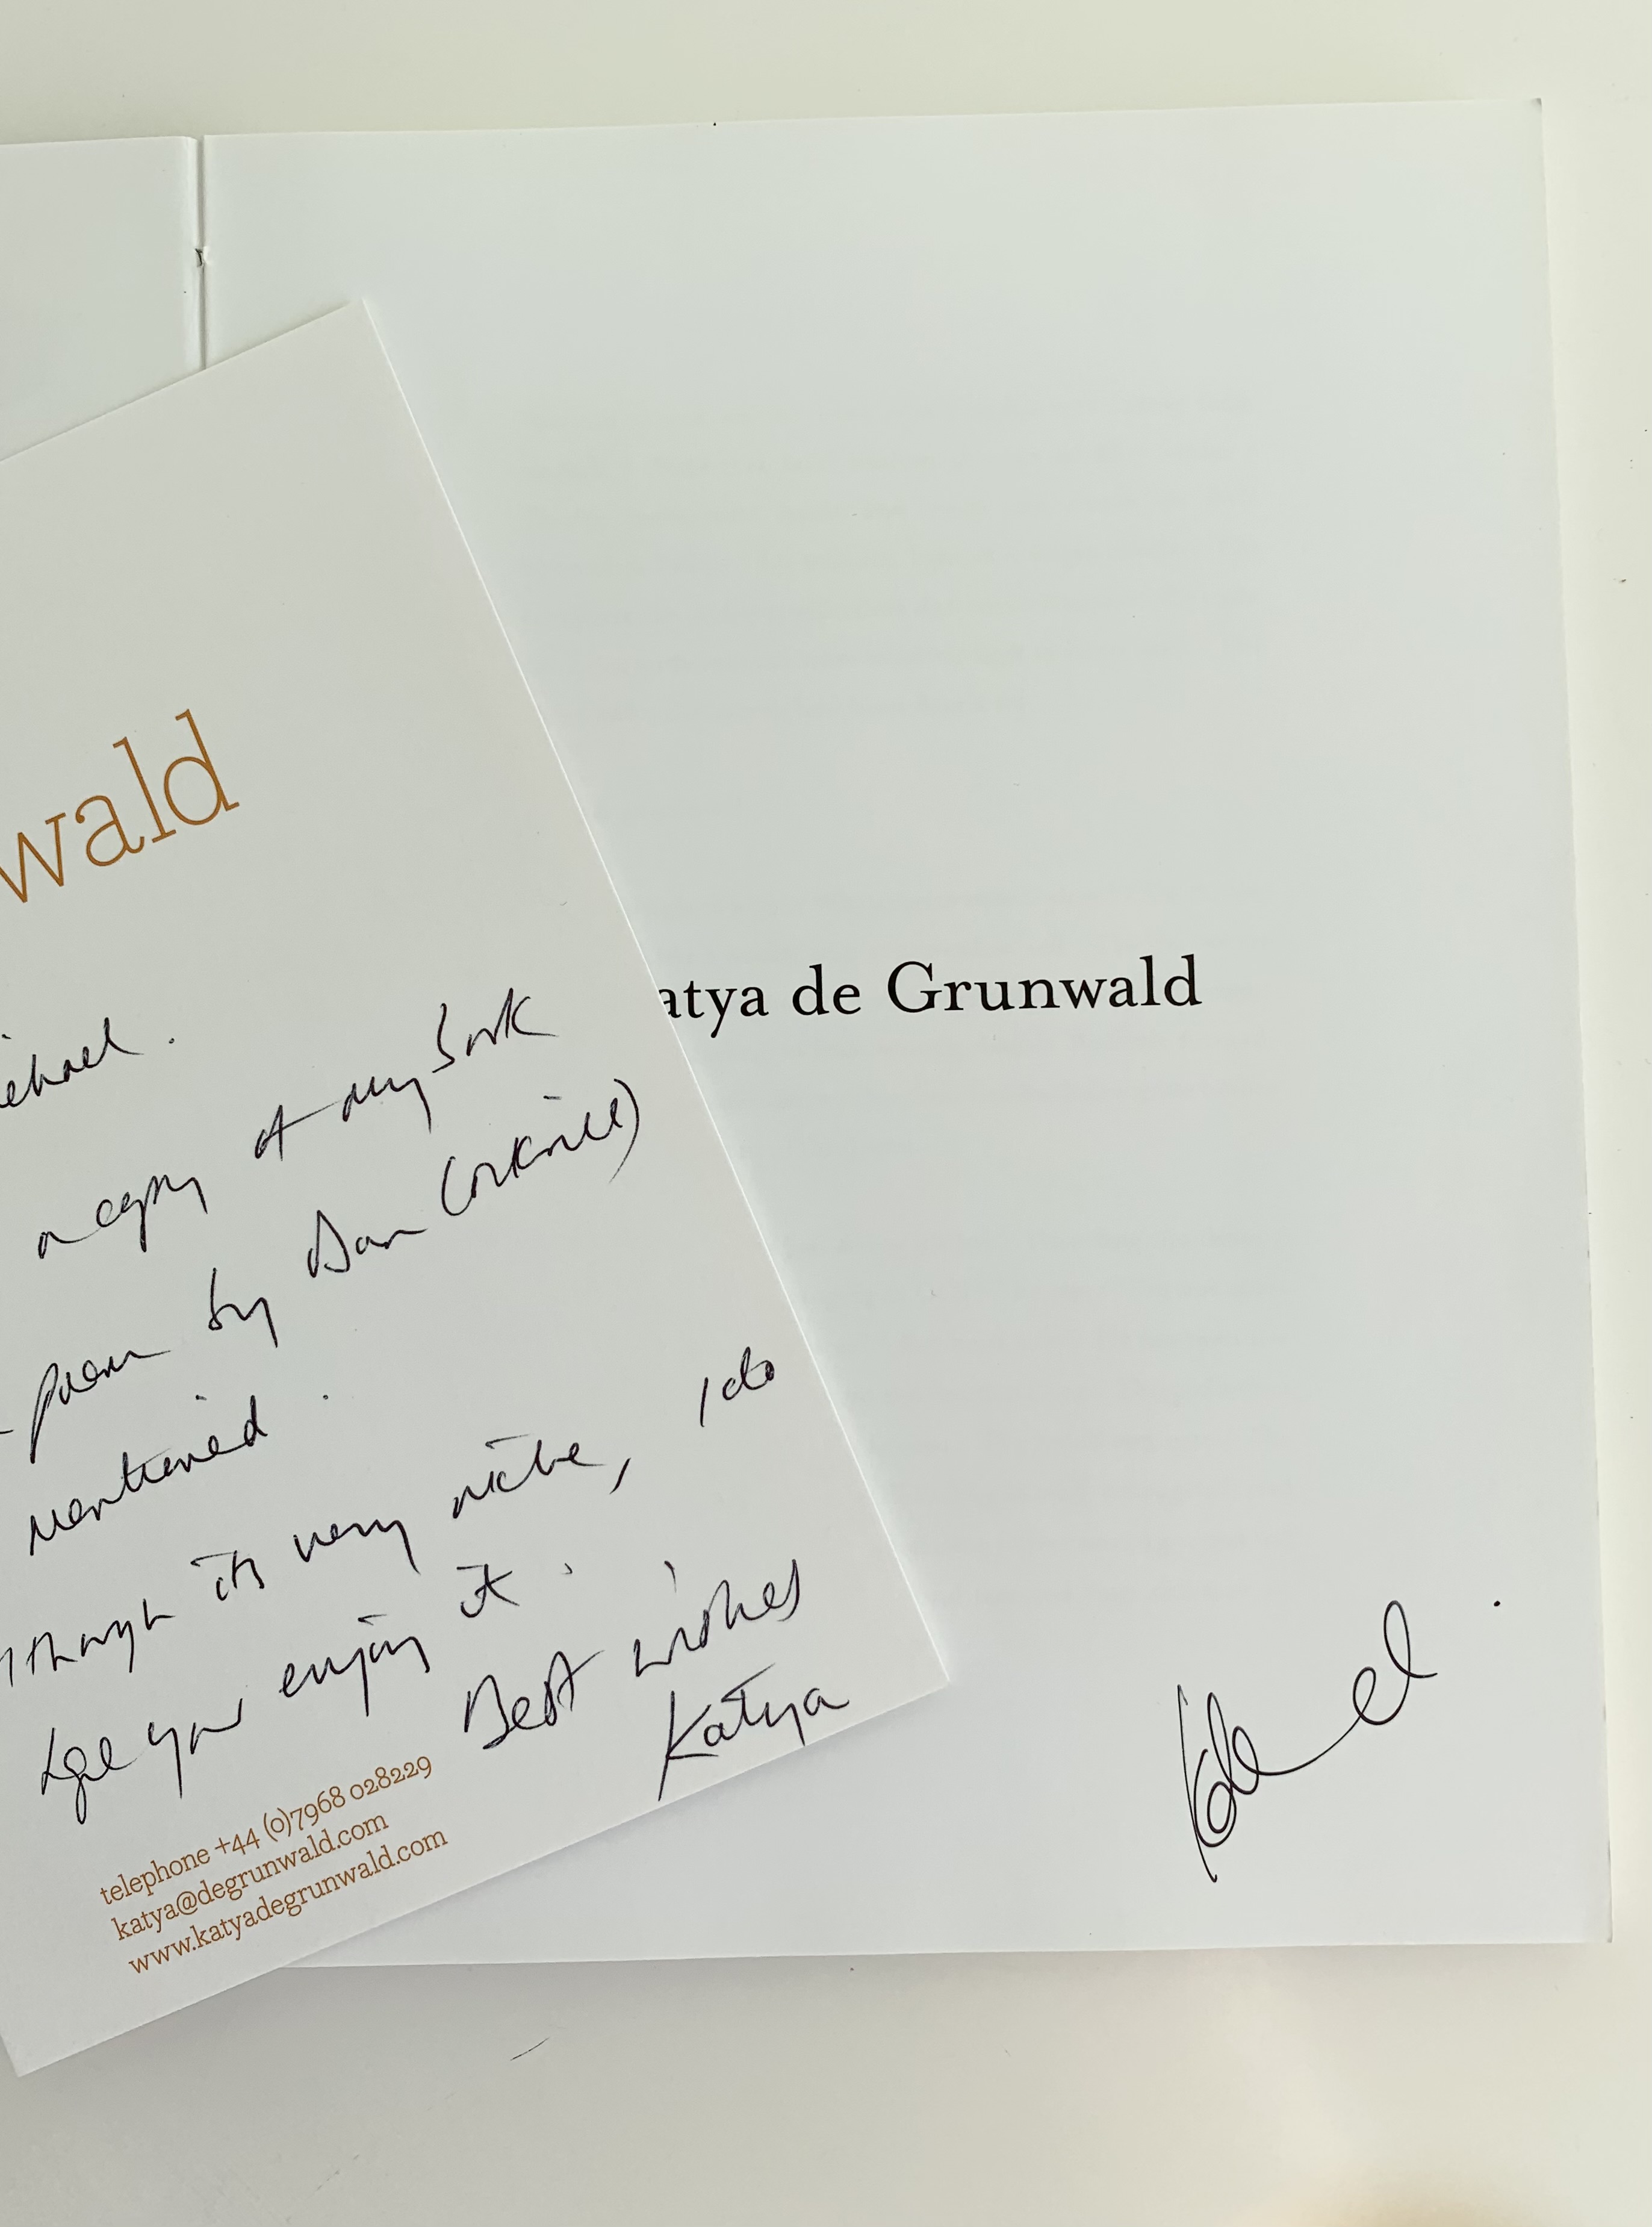 wald
ichael.
a copy of my book
poem by Dan Corkill)
mentioned.
lthough its very niche, I do
hope you enjoy it.
Best wishes
Katya
telephone +44 (0)7968 028229
katya@degrunwald.com
www.katyadegrunwald.com
atya de Grunwald